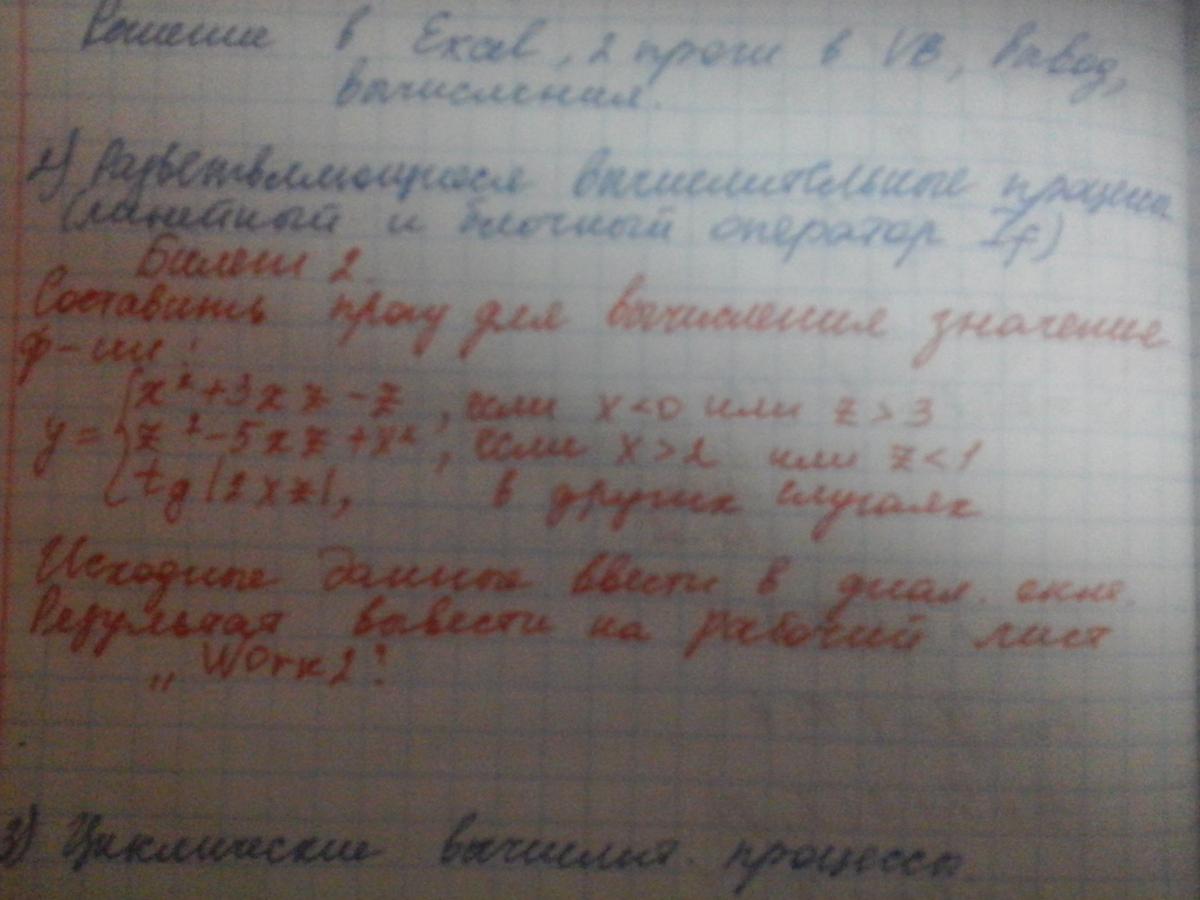 Решение в Excel, 2 проги в VB, вывод,
вычисления.
2) Разветвляющиеся вычислительные процессы
(линейный и блочный оператор If)
Билет 2
Составить прогу для вычисления значение
ф-ии:
x² + 3xz - z, если x<0 или z>3
y = z² - 5xz + x², если x>2 или z<1
tg|2xz|, в других случаях
Исходные данные ввести в диал. окне.
Результат вывести на рабочий лист
„Work2"
3) Циклические вычислит. процессы